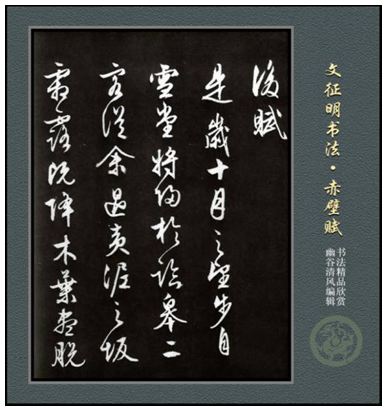 文征明书法·赤壁赋
书法精品欣赏
幽谷清风编辑
後賦
是歲十月之望步自
雪堂將歸於臨皋二
客從余過黃泥之坂
霜露既降木葉盡脫